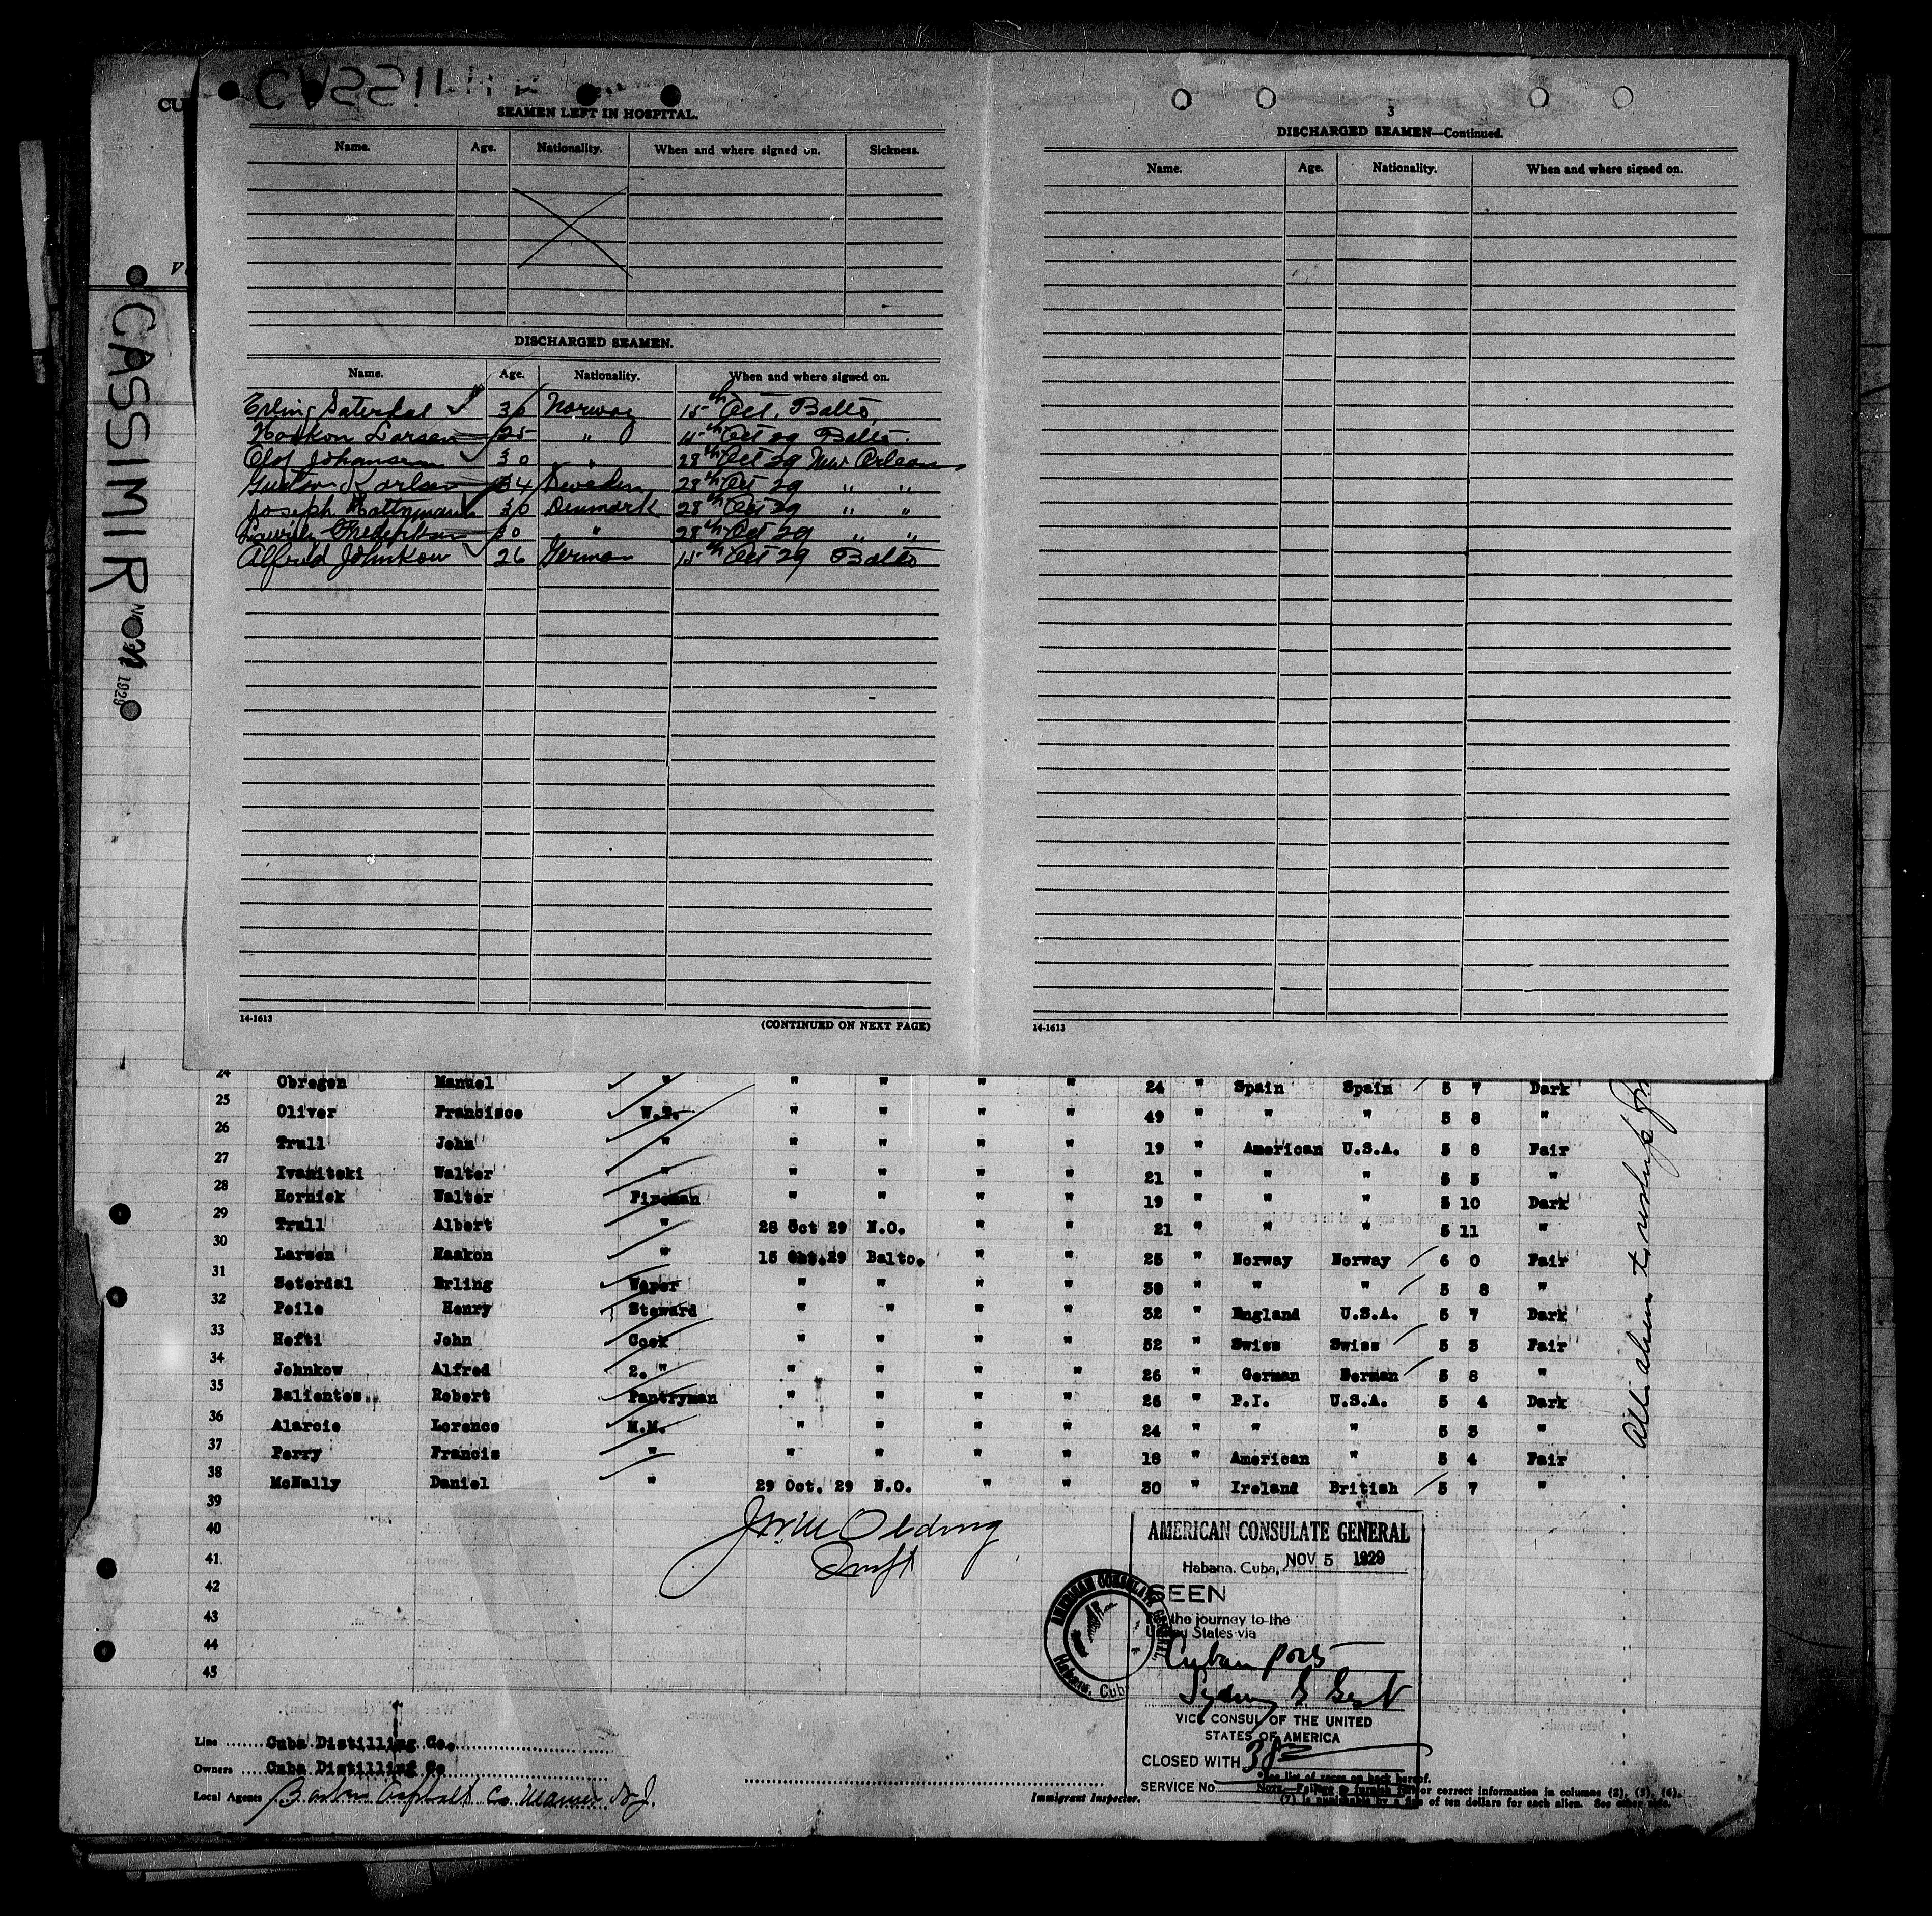 CU
CASSIMIR
NOV 1929
SEAMEN LEFT IN HOSPITAL.
Name. Age. Nationality. When and where signed on. Sickness.
DISCHARGED SEAMEN.
Name. Age. Nationality. When and where signed on.
Erling Saterdal 30 Norway 15th Oct. Balto
Haakon Larsen 25 " 15th Oct 29 Balto.
Olof Johansen 30 " 28th Oct 29 New Orleans
Gustav Karlsen 34 Sweden 28th Oct 29 " "
Joseph 30 Denmark 28th Oct 29 " "
30 " 28th Oct 29 " "
Alfred Johnkow 26 German 15th Oct 29 Balto
14-1613 (CONTINUED ON NEXT PAGE)
3
DISCHARGED SEAMEN—Continued.
Name. Age. Nationality. When and where signed on.
14-1613
24 Obregon Manuel " " " " " 24 " Spain Spain 5 7 Dark
25 Oliver Francisco W.T. " " " " 49 " " " 5 8 "
26 Trull John " " " " " 19 " American U.S.A. 5 8 Fair
27 Ivanitski Walter " " " " " 21 " " " 5 5 "
28 Hornick Walter Fireman " " " " 19 " " " 5 10 Dark
29 Trull Albert " 28 Oct 29 N.O. " " 21 " " " 5 11 "
30 Larsen Haakon " 15 Oct.29 Balto. " " 25 " Norway Norway 6 0 Fair
31 Seterdal Erling Waper " " " " 30 " " " 5 8 "
32 Peile Henry Steward " " " " 32 " England U.S.A. 5 7 Dark
33 Hefti John Cook " " " " 52 " Swiss Swiss 5 5 Fair
34 Johnkow Alfred 2. " " " " " 26 " German German 5 8 "
35 Balientos Robert Pantryman " " " " 26 " P.I. U.S.A. 5 4 Dark
36 Alarcio Lorence M.M. " " " " 24 " " " 5 3 "
37 Perry Francis " " " " " 18 " American " 5 4 Fair
38 McNally Daniel " 29 Oct. 29 N.O. " " 30 " Ireland British 5 7 "
39
40
41.
42
43
44
45
AMERICAN CONSULATE GENERAL
Habana, Cuba, NOV 5 1929
SEEN
For the journey to the
United States via
Cuban ports
VICE CONSUL OF THE UNITED
STATES OF AMERICA
CLOSED WITH 38
SERVICE No.
AMERICAN CONSULATE GENERAL
Habana, Cuba
Line Cuba Distilling Co.
Owners Cuba Distilling Co
Local Agents Asphalt Co N.J.
Immigrant Inspector.
*See list of races on back hereof.
NOTE.—Failure to furnish full or correct information in columns (2), (5), (6),
(7) is punishable by a fine of ten dollars for each alien. See other side.